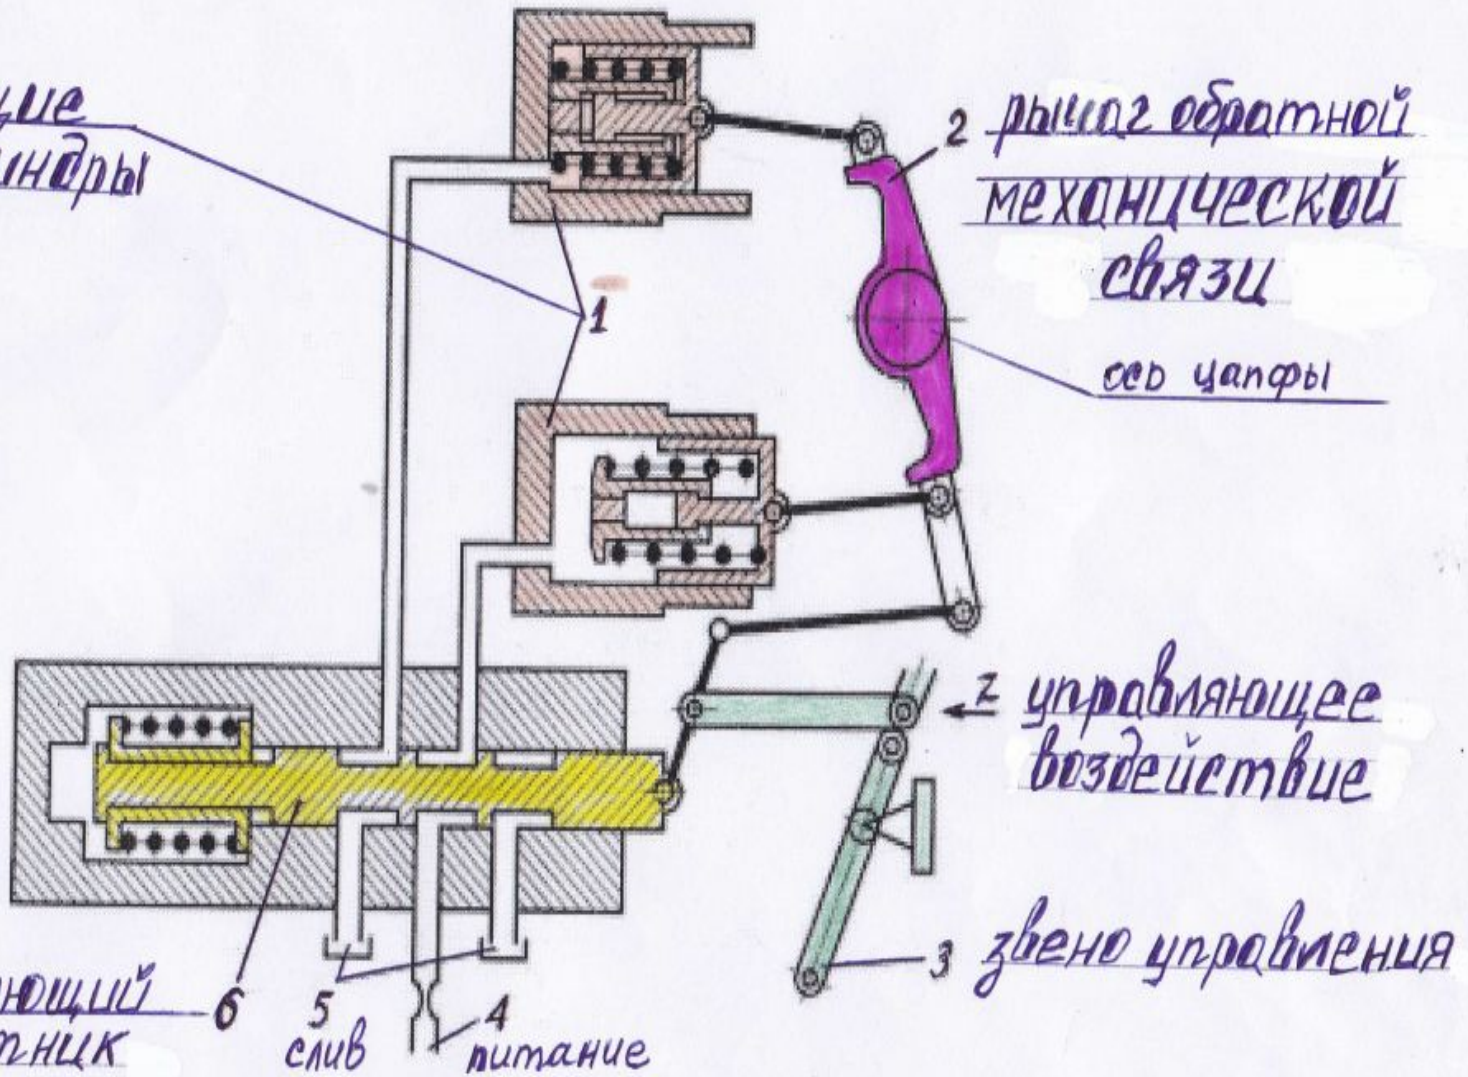 2 рычаг обратной
механической
связи
ось цапфы
1
z управляющее
воздействие
3 звено управления
6
5
слив
4
питание